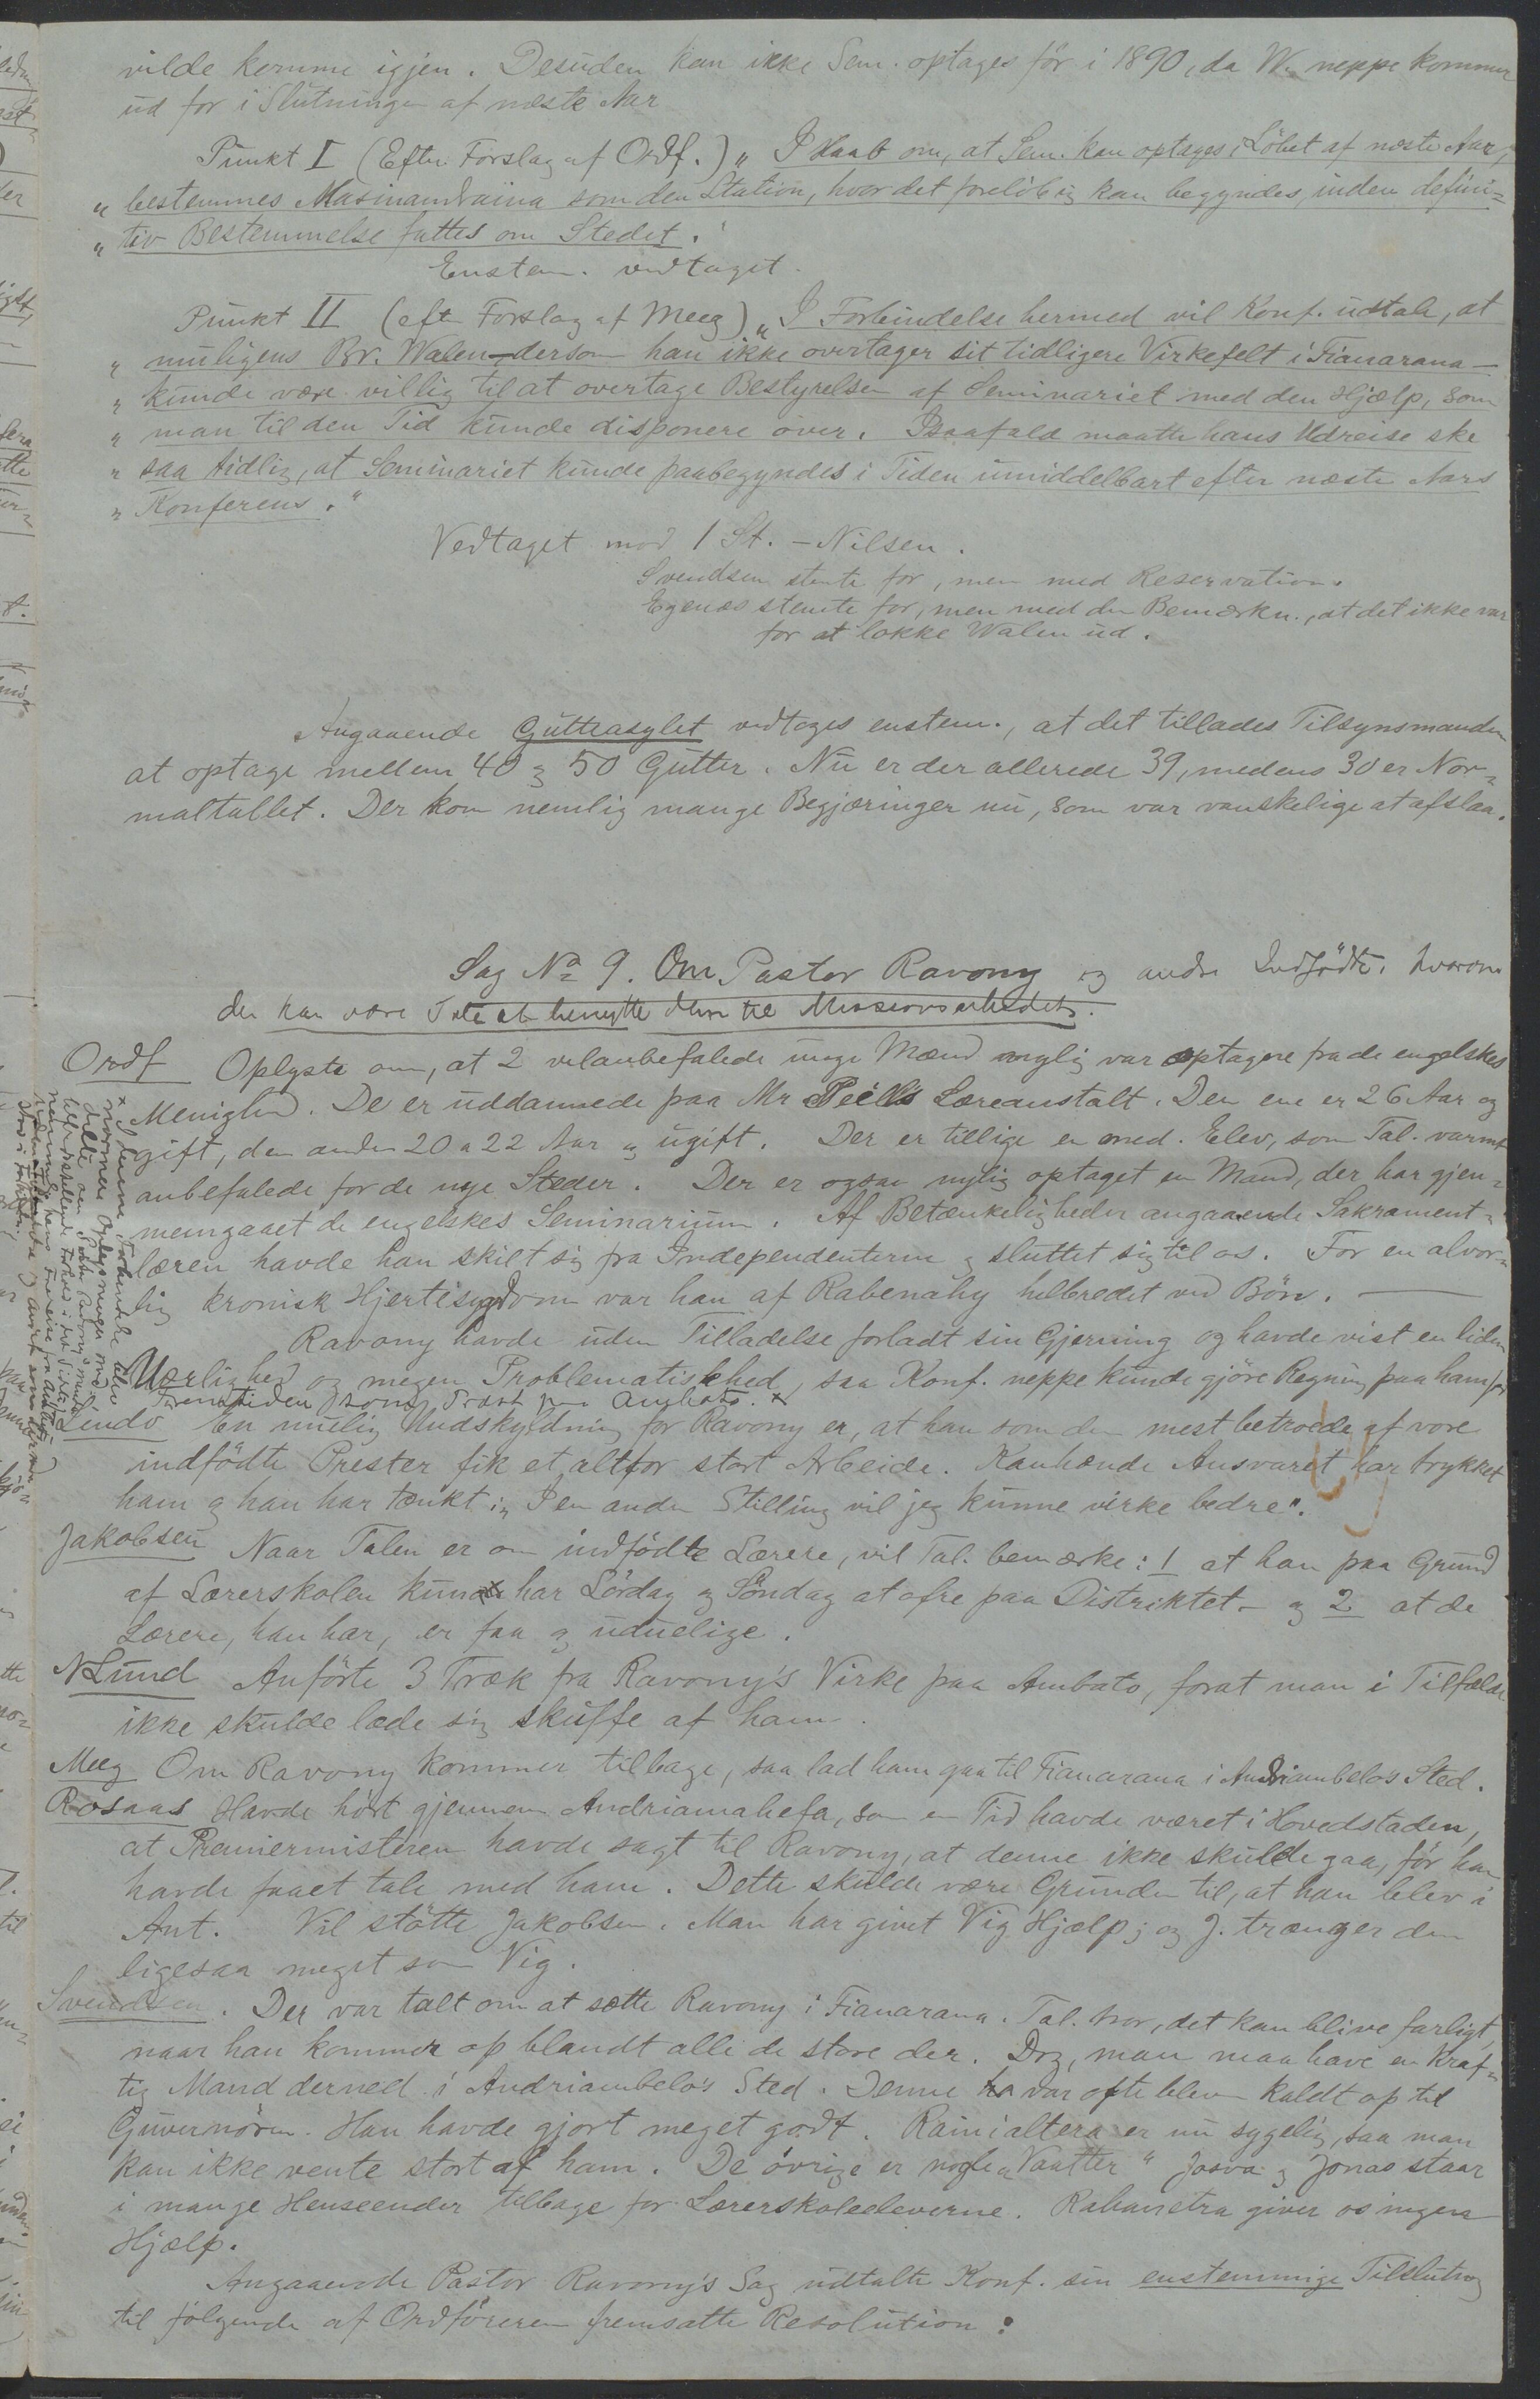 vilde komme igjen. Desuden kan ikke Sem. optages för i 1890, da W. neppe kommer
ud for i Slutningen af næste Aar
Punkt I (Efter Forslag af Ordf.) „ I Haab om, at Sem. kan optages i Löbet af næste Aar,
„ bestemmes Masinandraina som den Station, hvor det foreløbig kan begyndes, inden defini=
„ tiv Bestemmelse fattes om Stedet."
Enstem. vedtaget.
Punkt II (efter Forslag af Meeg) „ I Forbindelse hermed vil Konf. udtale, at
„ muligens Br. Walen – dersom han ikke overtager sit tidligere Virkefelt i Fianarana –
„ kunde være villig til at overtage Bestyrelsen af Seminariet med den Hjælp, som
„ man til den Tid kunde disponere over. Isaafald maatte hans Udreise ske
„ saa tidlig, at Seminariet kunde paabegyndes i Tiden umiddelbart efter næste Aars
„ Konferens."
Vedtaget mod 1 St. – Nilsen.
Svendsen stemte for, men med Reservation.
Egenæs stemte for, men med den Bemærkn., at det ikke var
for at lokke Walen ud.
Angaaende Gutteasylet vedtoges enstem., at det tillades Tilsynsmanden
at optage mellem 40 og 50 Gutter. Nu er der allerede 39, medens 30 er Nor=
maltallet. Der kom nemlig mange Begjæringer nu, som var vanskelige at afslaa.
Sag No 9. Om Pastor Ravony og andre Indfödte, hvorom
der kan være Tale at benytte dem til Missionsarbeidet.
Ordf Oplyste om, at 2 velanbefalede unge Mænd nylig var optagne fra de engelskes
Menighed. De er uddannede paa Mr Peill's Læreanstalt. Den ene er 26 Aar og
gift, den anden 20 a 22 Aar og ugift. Der er tillige en med. Elev, som Tal. varmt
anbefalede for de nye Steder. Der er ogsaa nylig optaget en Mand, der har gjen=
nemgaaet de engelskes Seminarium. Af Betænkeligheder angaaende Sakrament=
læren havde han skilt sig fra Independenterne og sluttet sig til os. For en alvor=
lig kronisk Hjertesygdom var han af Rabenahy helbredet ved Bön. —
Ravony havde uden Tilladelse forladt sin Gjerning og havde vist en liden
Uærlighed og megen Problematiskhed, saa Konf. neppe kunde gjöre Regning paa ham for
Fremtiden som Præst paa Ambato. x
Lindo En mulig Undskyldning for Ravony er, at han som den mest betroede af vore
indfödte Prester fik et altfor stort Arbeide. Kanhænde Ansvaret har trykket
ham og han har tænkt: „I en anden Stilling vil jeg kunne virke bedre".
Jakobsen Naar Talen er om indfödte Lærere, vil Tal. bemærke: 1 at han paa Grund
af Lærerskolen kun har Lördag og Söndag at ofre paa Distriktet – og 2 at de
Lærere, han har, er faa og uduelige.
NLund Anförte 3 Træk fra Ravony's Virke paa Ambato, forat man i Tilfælde
ikke skulde lade sig skuffe af ham.
Meeg Om Ravony kommer tilbage, saa lad ham gaa til Fianarana i Andriambelo's Sted.
Rosaas Havde hört gjennem Andriamahefa, som en Tid havde været i Hovedstaden,
at Premierministeren havde sagt til Ravony, at denne ikke skulde gaa, för han
havde faaet tale med ham. Dette skulde være Grunden til, at han blev i
Ant. Vil stötte Jakobsen. Man har givet Vig Hjælp; og J. trænger den
ligesaa meget som Vig.
Svendsen. Der var talt om at sætte Ravony i Fianarana. Tal. tror, det kan blive farligt,
naar han kommer op blandt alle de store der. Dog, man maa have en kraf=
tig Mand derned i Andriambelo's Sted. Denne var ofte bleven kaldt op til
Guvernören. Han havde gjort meget godt. Rainialtera er nu sygelig, saa man
kan ikke vente stort af ham. De övrige er nogle „Vaatter" Josva og Jonas staar
i mange Henseender tilbage for Lærerskoleeleverne. Rabanetra giver os ingen
Hjælp.
Angaaende Pastor Ravony's Sag udtalte Konf. sin enstemmige Tilslutning
til fölgende af Ordföreren fremsatte Resolution: